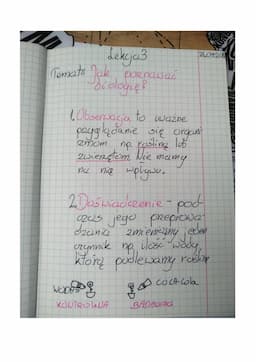 Lekcja 3
Temat: Jak poznawać
biologię?
1. Obserwacja to ważne
przyglądanie się organi
zmom np. roślina lub
zwierzętom. Nie mamy
na nią wpływu.
2. Doświadczenie - pod
czas jego przeprowa
dzania zmieniamy jeden
czynnik np. ilość wody,
którą podlewamy roślinę
woda coca-cola
KONTROLNA BADAWCZA